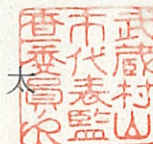 武蔵村山
市代表監
査委員之
太